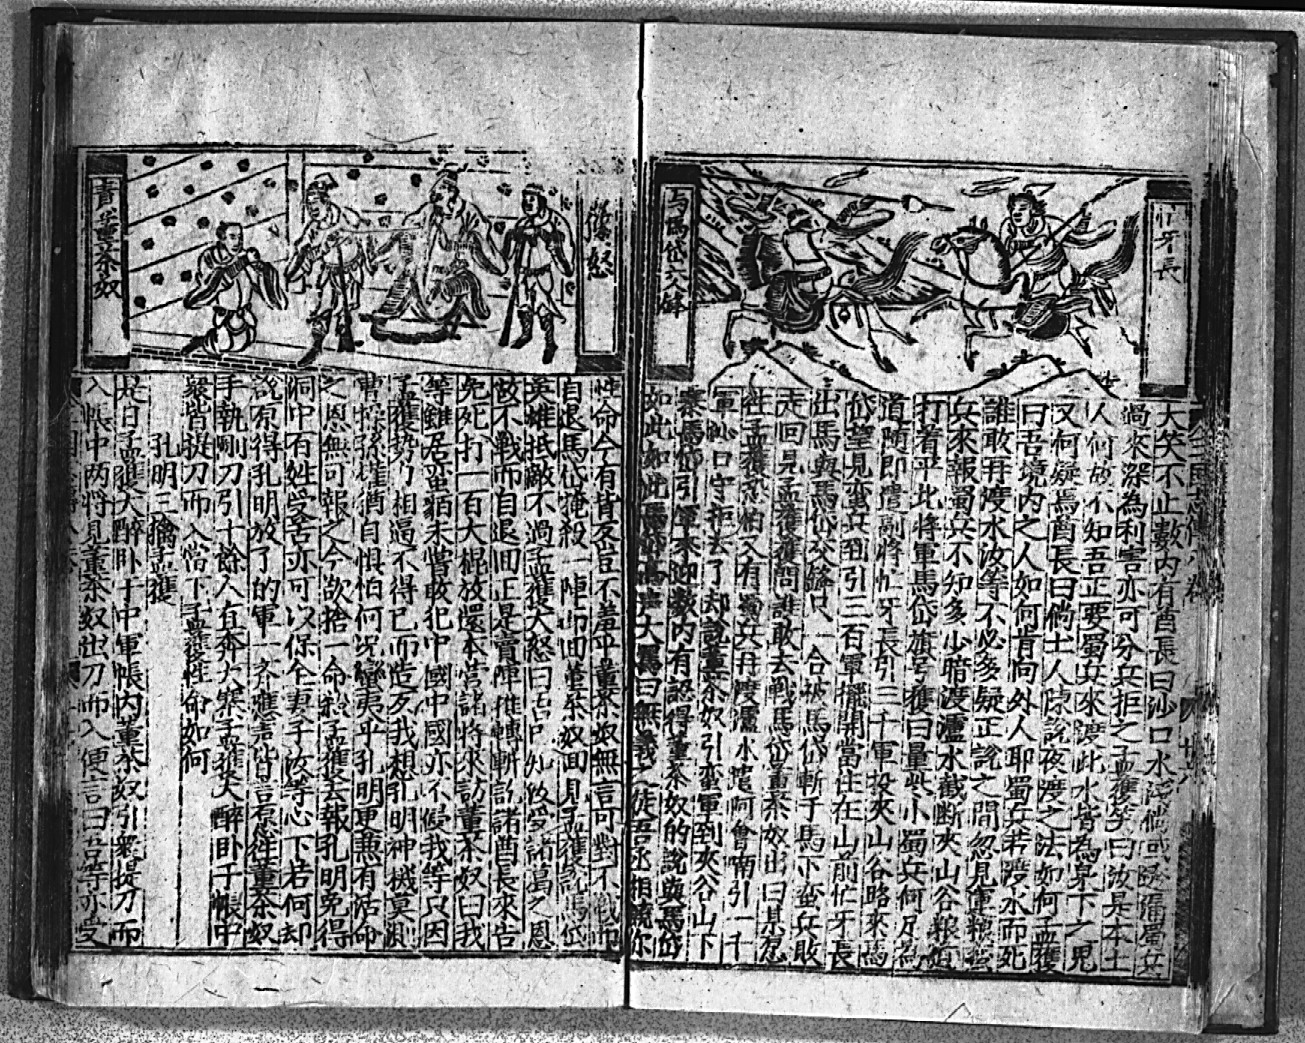 忙牙長
与馬岱交鋒
大笑不止數內有酋長曰沙口水淺倘或踈漏蜀兵
過來深為利害亦可分兵拒之孟獲笑曰汝是本土
人何故不知吾正要蜀兵來渡此水皆為泉下之鬼
又何疑焉酋長曰倘土人陳說夜渡之法如何孟獲
曰吾境內之人如何肯向外人耶蜀兵若渡水而死
誰敢再渡水汝等不必多疑正說之間忽見運糧蛮
兵來報蜀兵不知多少暗渡瀘水截断夹山谷粮道
打着平北將軍馬岱旗号獲曰量些小蜀兵何足為
道随即遣副將忙牙長引三千軍投夹山谷路來馬
岱望見蛮兵到引三百軍擺開當住在山前忙牙長
出馬與馬岱交鋒只一合被馬岱斬于馬下蛮兵敗
走回見孟獲獲問誰敢去戰馬岱董荼奴出曰某愿
往孟獲恐怕又有蜀兵再渡瀘水遣阿會喃引一千
軍沙口守拒去了却說董荼奴引蛮軍到夾谷山下
寨馬岱引軍來迎數內有認得董荼奴的說與馬岱
如此如此馬岱高声大罵曰無義之徒吾丞相饒你
奴
責董荼奴
性命今有背反豈不羞乎董荼奴無言可對不戰而
自退馬岱掩殺一陣而回董荼奴回見孟獲說馬岱
英雄抵敵不過孟獲大怒曰吾已知你受諸葛之恩
故不戰而自退回正是賣陣推轉斬訖諸酋長來告
免死打一百大棍放還本营諸將來訪董荼奴曰我
等雖居蛮貊未嘗敢犯中國中國亦不侵我等只因
孟獲势力相逼不得已而造反我想孔明神機莫測
曹操孫權猶自惧怕何况蠻夷乎孔明更兼有活命
之恩無可報之今欲捨一命殺孟獲去報孔明免得
洞中有姓受苦亦可以保全妻子汝等心下若何却
說原得孔明放了的軍一齐應言皆言愿徃董荼奴
手執剛刀引十餘人直奔大寨孟獲大醉卧于帳中
衆皆提刀而入當下孟獲性命如何
孔明三擒孟獲
是日孟獲大醉卧于中軍帳內董荼奴引衆提刀而
入帳中两將見董荼奴出刀而入便言曰吾等亦受